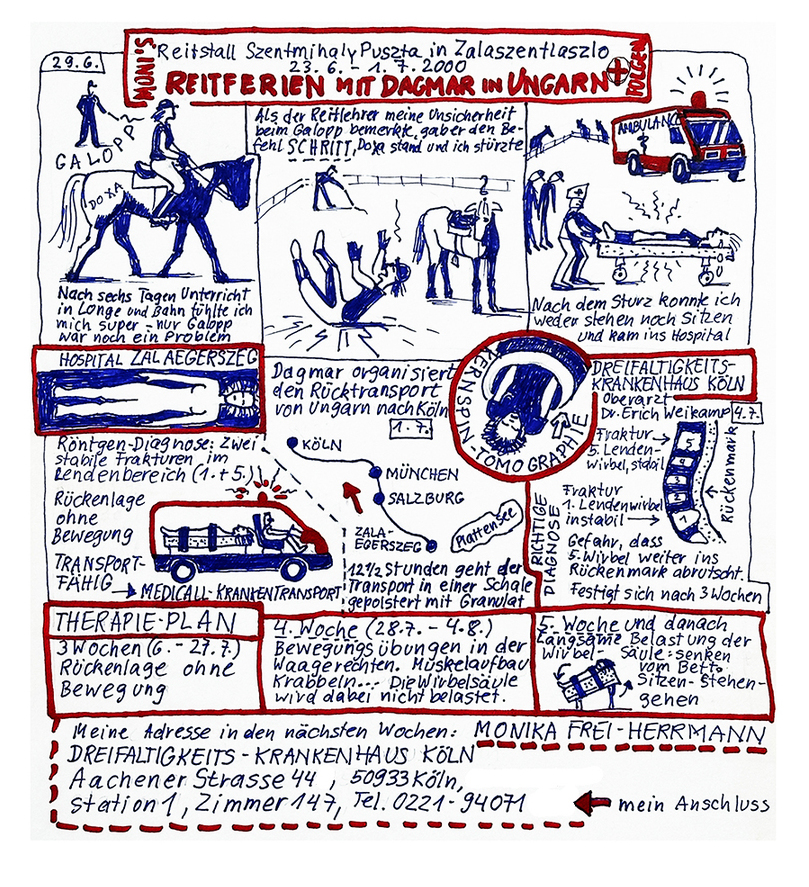 Reitstall Szentmihaly Puszta in Zalaszentlaszlo
23.6. - 1.7.2000
MONI'S
REITFERIEN MIT DAGMAR IN UNGARN
FOLGEN
29.6.
GALOPP
DOXA
Nach sechs Tagen Unterricht
in Longe und Bahn fühlte ich
mich super - nur Galopp
war noch ein Problem
Als der Reitlehrer meine Unsicherheit
beim Galopp bemerkte, gab er den Be-
fehl SCHRITT, Doxa stand und ich stürzte
?
AMBULANC
Nach dem Sturz konnte ich
weder stehen noch sitzen
und kam ins Hospital
HOSPITAL ZALAEGERSZEG
Röntgen-Diagnose: Zwei
stabile Frakturen im
Lendenbereich (1.+5.)
Rückenlage
ohne
Bewegung
TRANSPORT-
FÄHIG
MEDICALL-KRANKENTRANSPORT
Dagmar organisiert
den Rücktransport
von Ungarn nach Köln
1.7.
KÖLN
MÜNCHEN
SALZBURG
ZALA-
EGERSZEG
Plattensee
12 1/2 Stunden geht der
Transport in einer Schale
gepolstert mit Granulat
KERNSPIN-TOMOGRAPHIE
DREIFALTIGKEITS-
KRANKENHAUS KÖLN
Oberarzt
Dr. Erich Weikamp
4.7.
Fraktur
5. Lenden-
wirbel, stabil
Fraktur
1. Lendenwirbel
instabil
5
4
3
2
1
Rückenmark
RICHTIGE
DIAGNOSE
Gefahr, dass
5. Wirbel weiter ins
Rückenmark abrutscht.
Festigt sich nach 3 Wochen
THERAPIE-PLAN
3 Wochen (6. - 27.7.)
Rückenlage ohne
Bewegung
4. Woche (28.7. - 4.8.)
Bewegungsübungen in der
Waagerechten. Muskelaufbau
Krabbeln... Die Wirbelsäule
wird dabei nicht belastet.
5. Woche und danach
Langsame Belastung der
Wirbel-Säule: senken
vom Bett.
Sitzen-stehen-
gehen
Meine Adresse in den nächsten Wochen: MONIKA FREI-HERRMANN
DREIFALTIGKEITS-KRANKENHAUS KÖLN
Aachener Strasse 44, 50933 Köln,
Station 1, Zimmer 147, Tel. 0221-94071
mein Anschluss